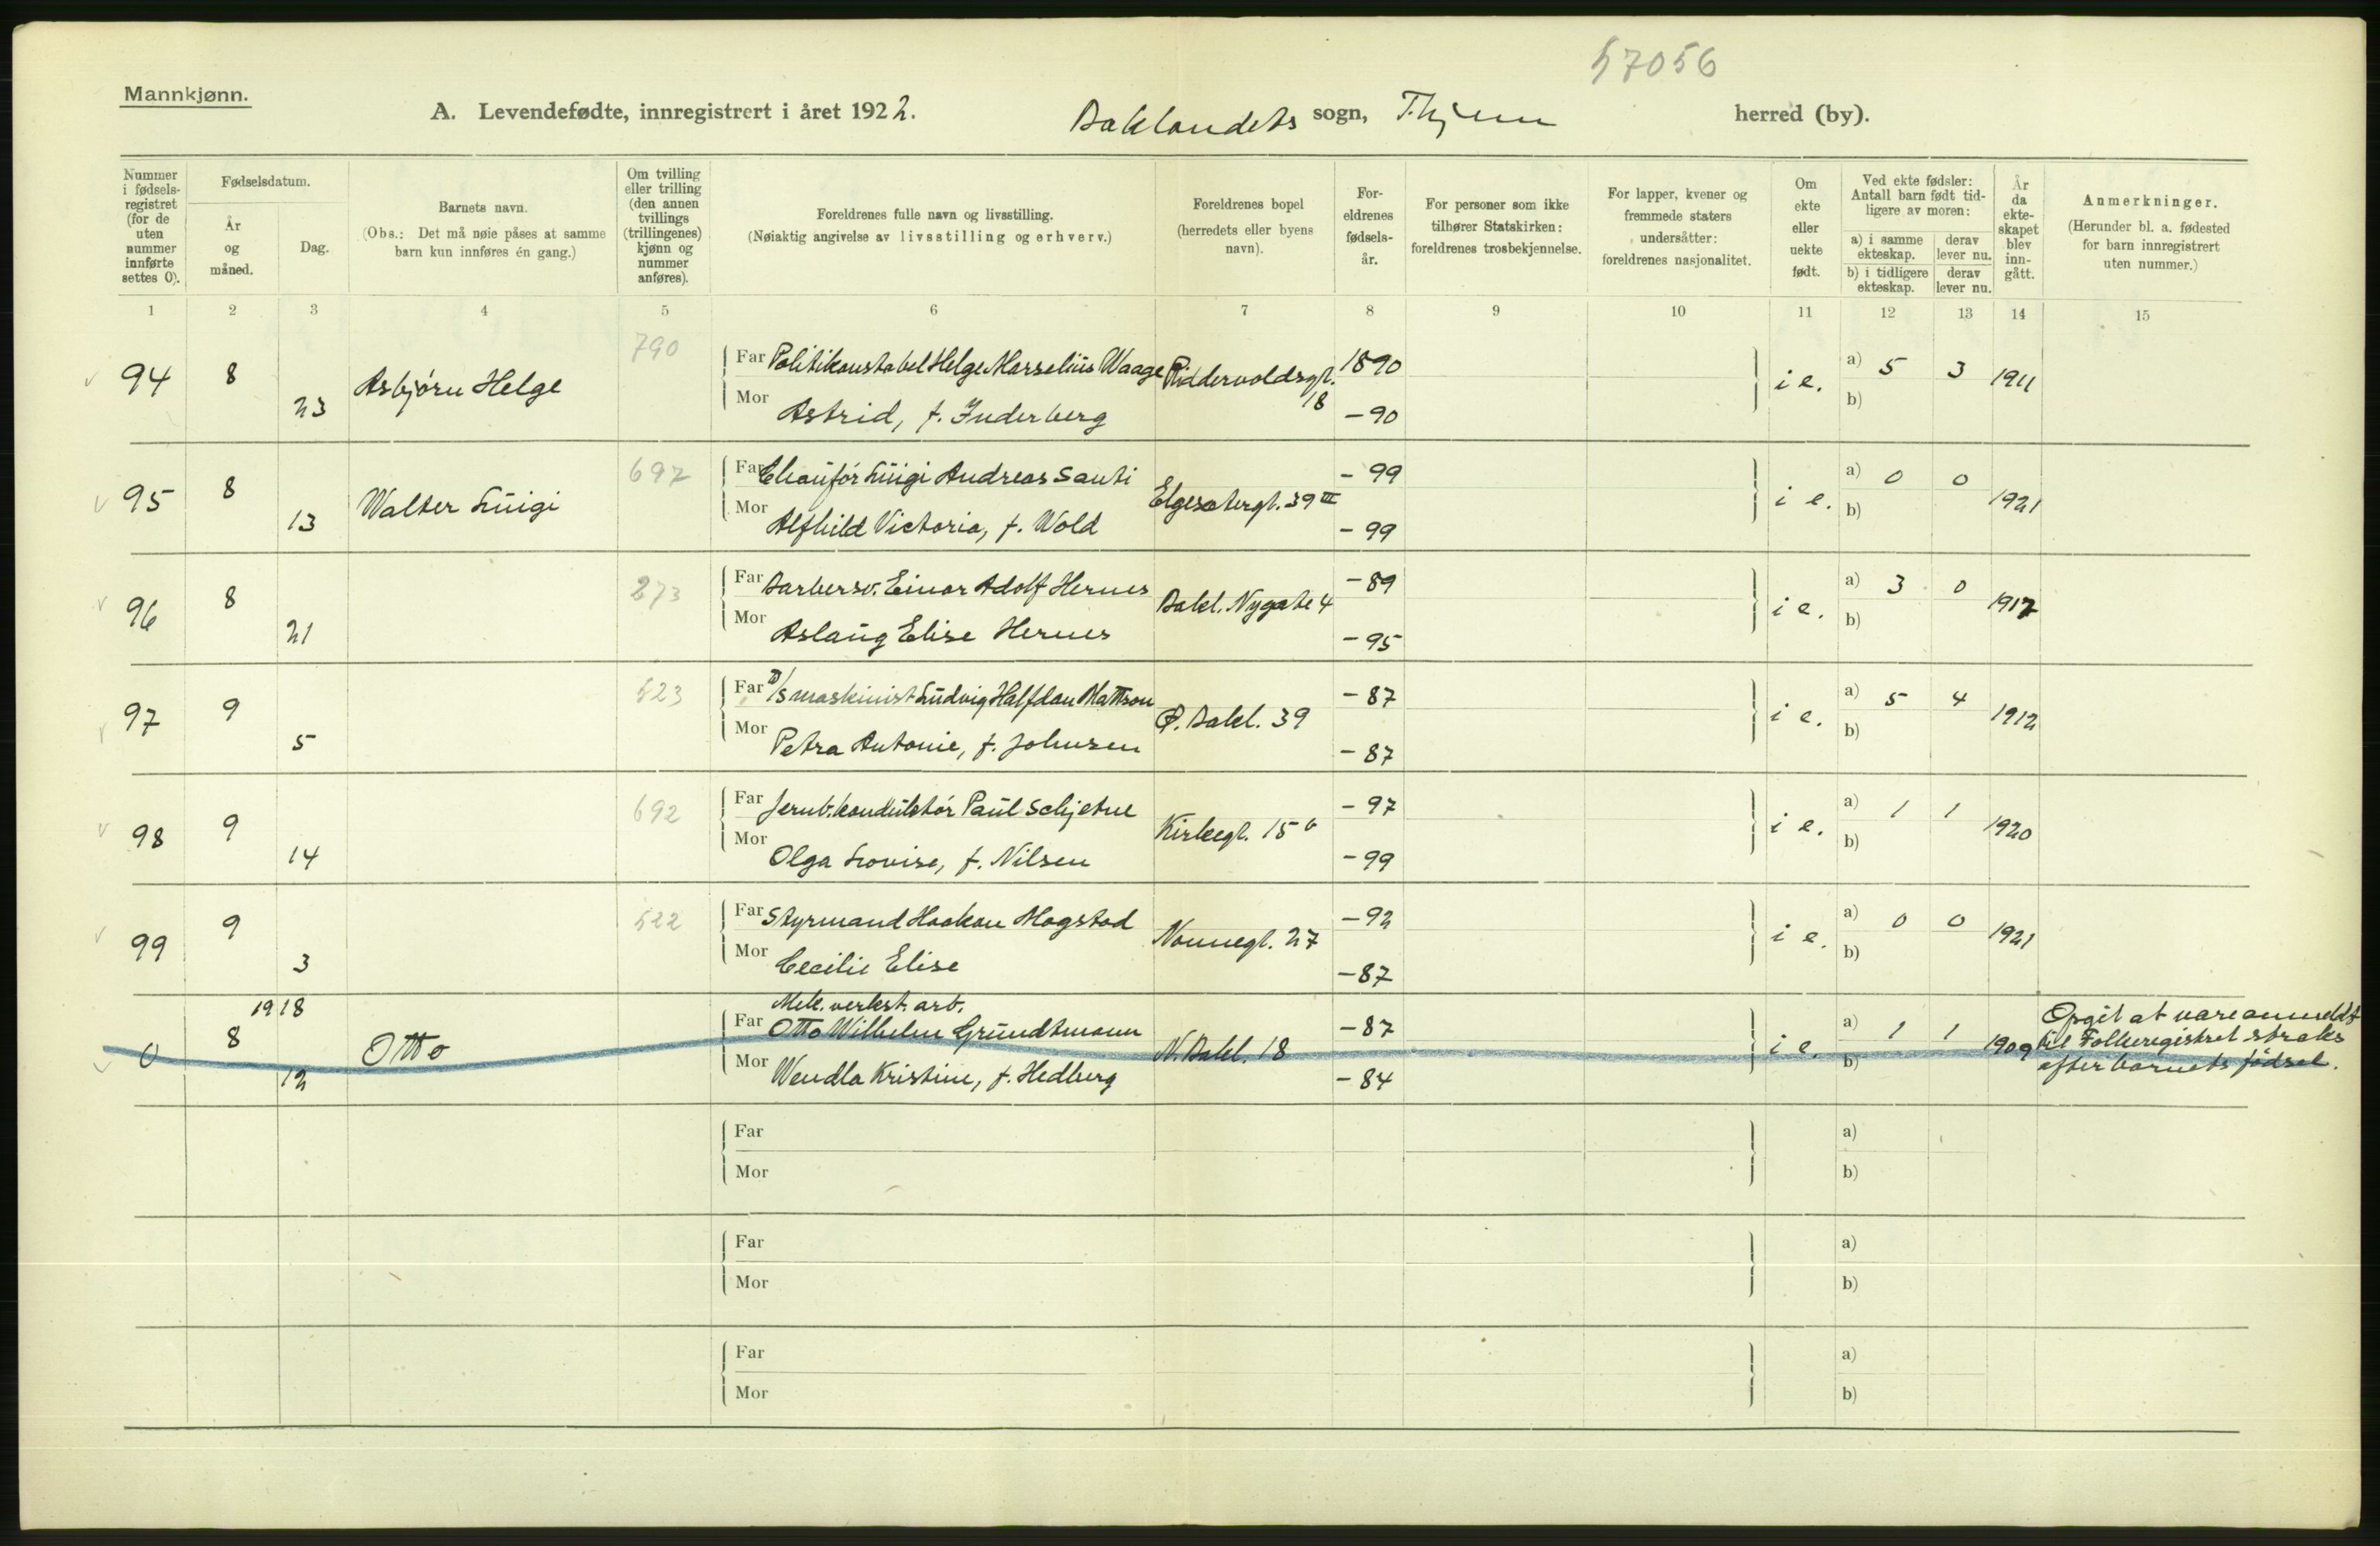 57056
Mannkjønn.
A. Levendefødte, innregistrert i året 1922. Baklandets sogn, T.hjem herred (by).
Nummer i fødsels-registret (for de uten nummer innførte settes 0).
Fødselsdatum.
År og måned.
Dag.
Barnets navn.
(Obs.: Det må nøie påses at samme barn kun innføres én gang.)
Om tvilling eller trilling (den annen tvillings (trillingenes) kjønn og nummer anføres).
Foreldrenes fulle navn og livsstilling.
(Nøiaktig angivelse av livsstilling og erhverv.)
Foreldrenes bopel (herredets eller byens navn).
For-eldrenes fødsels-år.
For personer som ikke tilhører Statskirken: foreldrenes trosbekjennelse.
For lapper, kvener og fremmede staters undersåtter: foreldrenes nasjonalitet.
Om ekte eller uekte født.
Ved ekte fødsler: Antall barn født tid-ligere av moren:
a) i samme ekteskap.
derav lever nu.
b) i tidligere ekteskap.
derav lever nu.
År da ekte-skapet blev inn-gått.
Anmerkninger.
(Herunder bl. a. fødested for barn innregistrert uten nummer.)
1 2 3 4 5 6 7 8 9 10 11 12 13 14 15
94 8 23 Asbjørn Helge 790
Far Politikonstabel Helge Marselius Waage Riddervoldsgt. 18 1890 i e. a) 5 3 1911
Mor Astrid, f. Inderberg -90 b)
95 8 13 Walter Luigi 697
Far Chauffør Luigi Andreas Santi Elgesetergt. 39 III -99 i e. a) 0 0 1921
Mor Alfhild Victoria, f. Wold -99 b)
96 8 21 273
Far Barbersv. Einar Adolf Hernes Bakl. Nygate 4 -89 i e. a) 3 0 1917
Mor Aslaug Elise Hernes -95 b)
97 9 5 523
Far D/s maskinist Ludvig Halfdan Mattson Ø. Bakl. 39 -87 i e. a) 5 4 1912
Mor Petra Antonie, f. Johnsen -87 b)
98 9 14 692
Far Jernb.konduktør Paul Schjetne Kirkegt. 15 b -97 i e. a) 1 1 1920
Mor Olga Lovise, f. Nilsen -99 b)
99 9 3 522
Far Styrmand Haakon Magstad Nonnegt. 27 -92 i e. a) 0 0 1921
Mor Cecilie Elise -87 b)
0 1918 8 12 Otto
Mek. verkst. arb.
Far Otto Wilhelm Grundtmann N. Bakl. 18 -87 i e. a) 1 1 1909
Mor Wendla Kristine, f. Hedberg -84 b)
Opgit at være anmeldt
til Folkeregistret straks
efter barnets fødsel.
Far a)
Mor b)
Far a)
Mor b)
Far a)
Mor b)